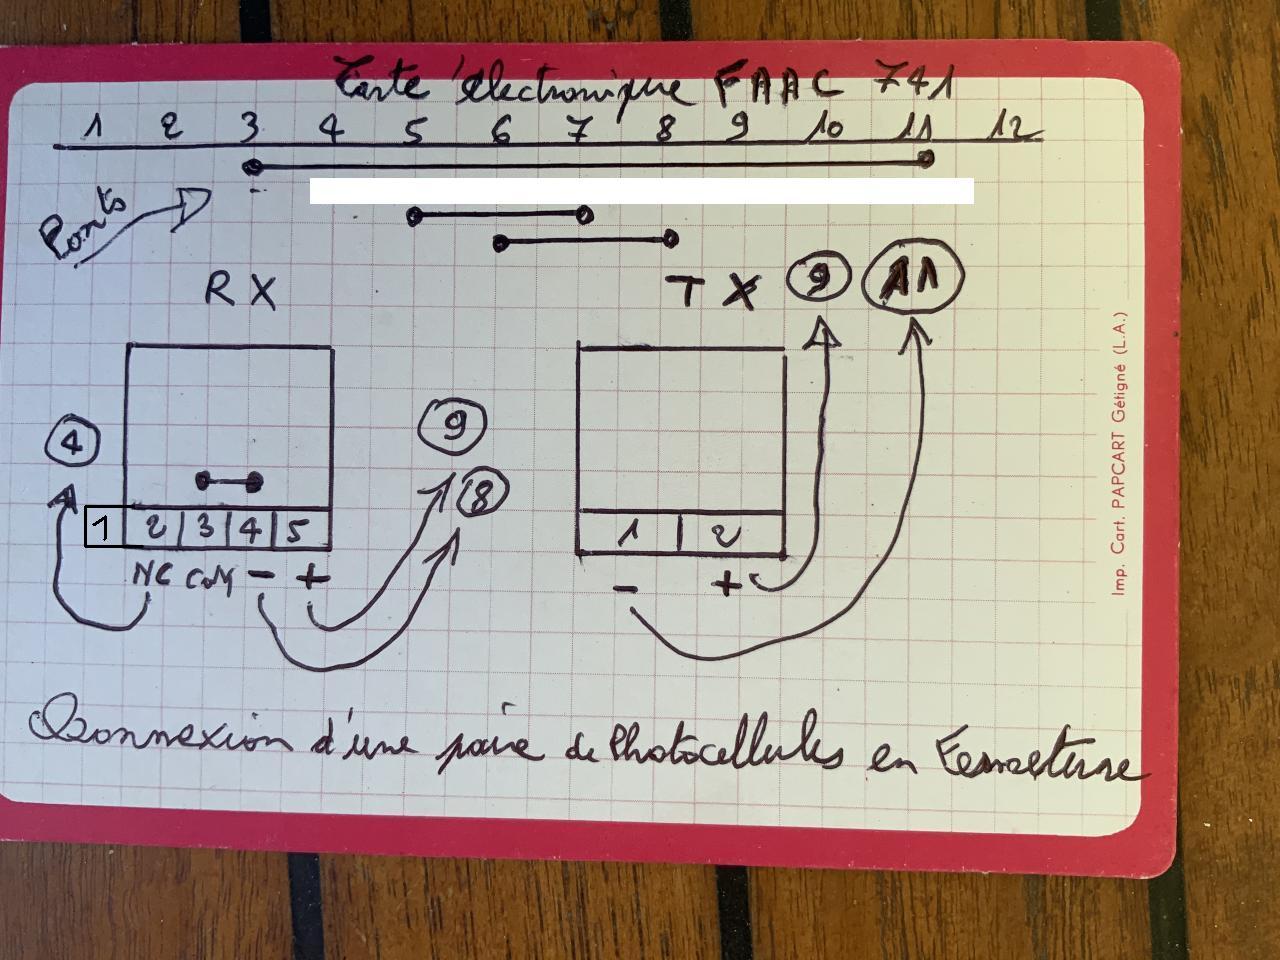 Carte électronique FAAC 741
1 2 3 4 5 6 7 8 9 10 11 12
Ponts
RX TX 9 11
4 9
8
1 2 3 4 5 1 2
NC COM - + - +
Connexion d'une paire de Photocellules en Fermeture
Imp. Cart. PAPCART Gétigné (L.A.)